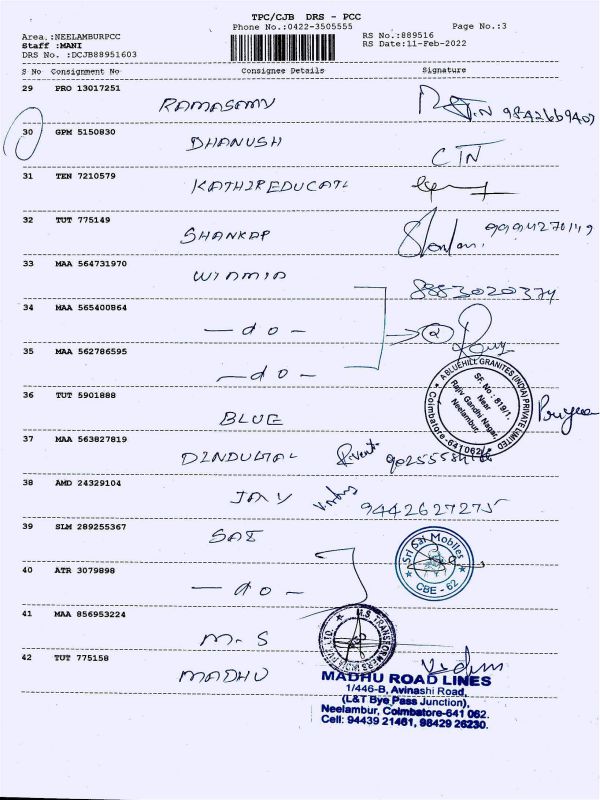 TPC/CJB DRS - PCC
Phone No.:0422-3505555 Page No.:3
Area.:NEELAMBURPCC RS No.:889516
Staff :MANI RS Date:11-Feb-2022
DRS No. :DCJB88951603
S No Consignment No Consignee Details Signature
29 PRO 13017251
RAMASAMY 9842669407
30 GPM 5150830
DHANUSH CTN
31 TEN 7210579
KATHIREDUCATI
32 TUT 775149
SHANKAR 9994270149
33 MAA 564731970
8883020374
34 MAA 565400864
— do —
35 MAA 562786595
— do —
A BLUEHILL GRANITES (INDIA) PRIVATE LIMITED
SF. No : 819/1,
Near
Rajiv Gandhi Nagar,
Neelambur,
Coimbatore-641 062
36 TUT 5901888
BLUE
37 MAA 563827819
DINDUGAL
38 AMD 24329104
JAY 9442627275
39 SLM 289255367
SAI
Sri Sai Mobiles
CBE - 62
40 ATR 3079898
— do —
41 MAA 856953224
M-S
M.S TRANSFORMERS
42 TUT 775158
MADHU
MADHU ROAD LINES
1/446-B, Avinashi Road,
(L&T Bye Pass Junction),
Neelambur, Coimbatore-641 062.
Cell: 94439 21461, 98429 26230.